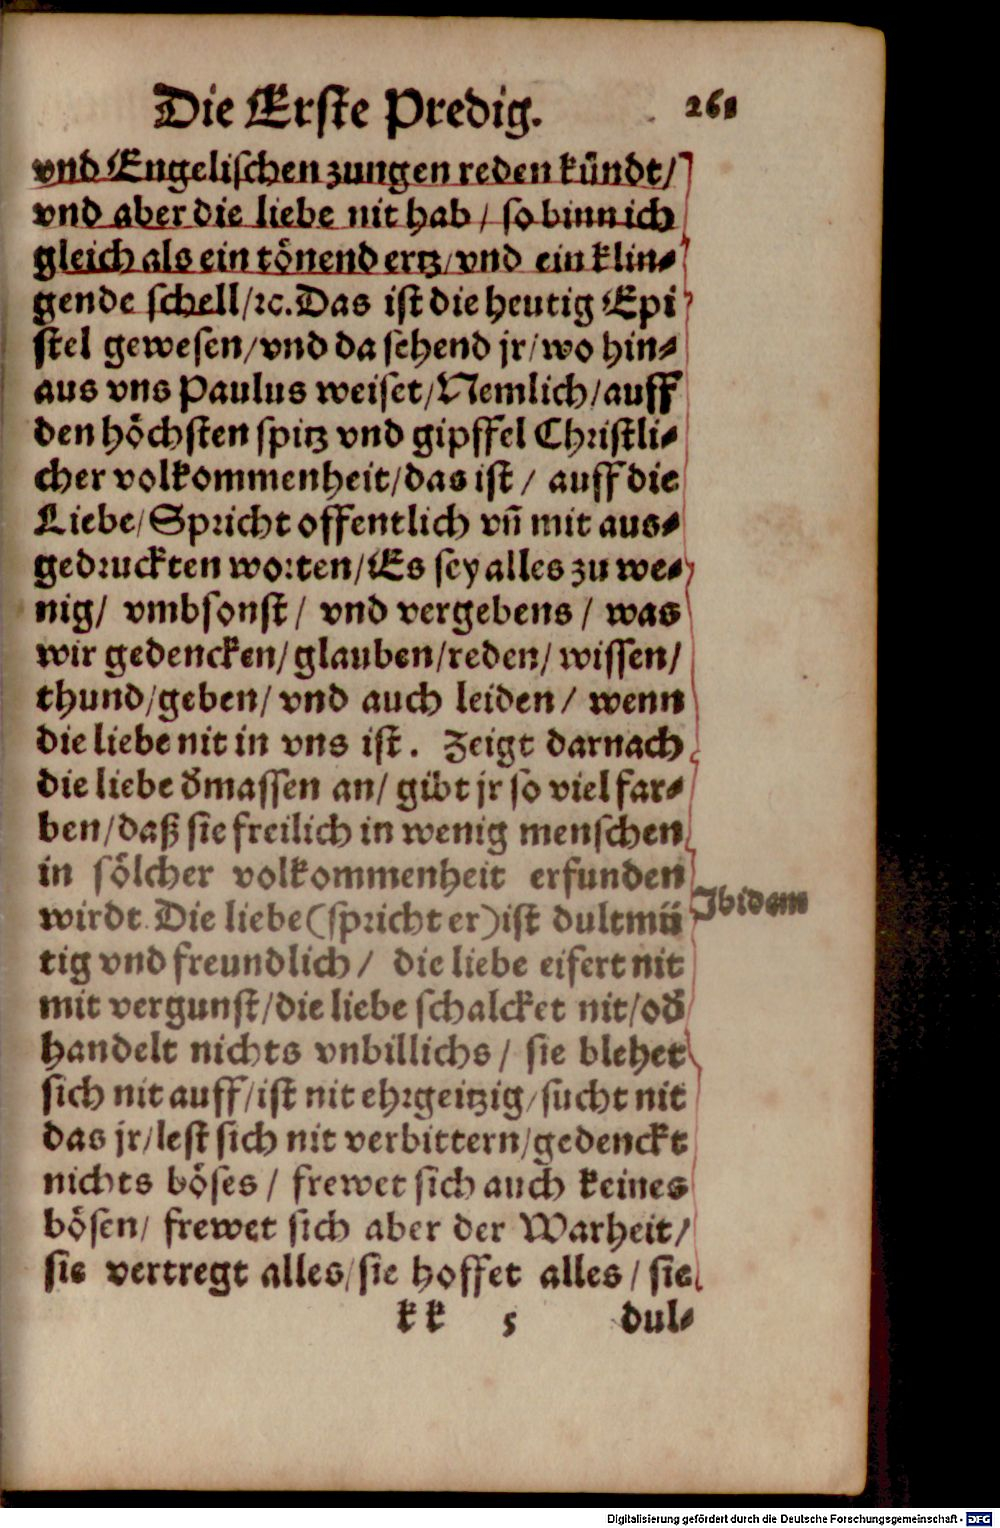 Die Erste Predig. 261
vnd Engelischen zungen reden kündt/
vnd aber die liebe nit hab / so binn ich
gleich als ein tönend ertz/vnd ein klin⸗
gende schell/ꝛc. Das ist die heutig Epi
stel gewesen/vnd da sehend jr/wo hin⸗
aus vns Paulus weiset/Nemlich/auff
den höchsten spitz vnd gipffel Christli⸗
cher volkommenheit/das ist / auff die
Liebe/Spricht offentlich vñ mit aus⸗
gedruckten worten/Es sey alles zu we⸗
nig/ vmbsonst / vnd vergebens / was
wir gedencken/glauben/reden/wissen/
thund/geben/ vnd auch leiden / wenn
die liebe nit in vns ist. Zeigt darnach
die liebe d̓massen an/ gibt jr so viel far⸗
ben/daß sie freilich in wenig menschen
in sölcher volkommenheit erfunden
wirdt. Die liebe (spricht er) ist dultmü
Ibidem
tig vnd freundlich / die liebe eifert nit
mit vergunst/die liebe schalcket nit/od̓
handelt nichts vnbillichs / sie blehet
sich nit auff/ist nit ehrgeitzig/sucht nit
das jr/lest sich nit verbittern/gedenckt
nichts böses / frewet sich auch keines
bösen/ frewet sich aber der Warheit/
sie vertregt alles/sie hoffet alles / sie
kk 5 dul⸗
Digitalisierung gefördert durch die Deutsche Forschungsgemeinschaft - DFG